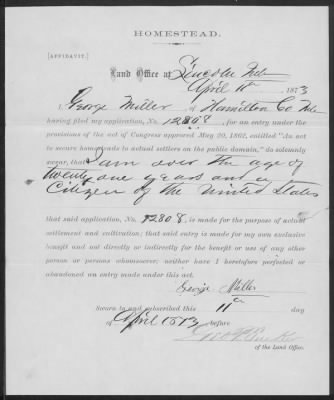 HOMESTEAD.
[AFFIDAVIT.]
Land Office at Lincoln Neb
April 11th 1873
I George Miller of Hamilton Co Neb
having filed my application, No. 12808. for an entry under the
provisions of the act of Congress approved May 20, 1862, entitled "An act
to secure homesteads to actual settlers on the public domain," do solemnly
swear, that I am over the age of
twenty one years and a
Citizen of the United States
that said application, No. 12808, is made for the purpose of actual
settlement and cultivation; that said entry is made for my own exclusive
benefit and not directly or indirectly for the benefit or use of any other
person or persons whomsoever: neither have I heretofore perfected or
abandoned an entry made under this act.
George Miller
Sworn to and subscribed this 11th day
of April 1873 before
of the Land Office.